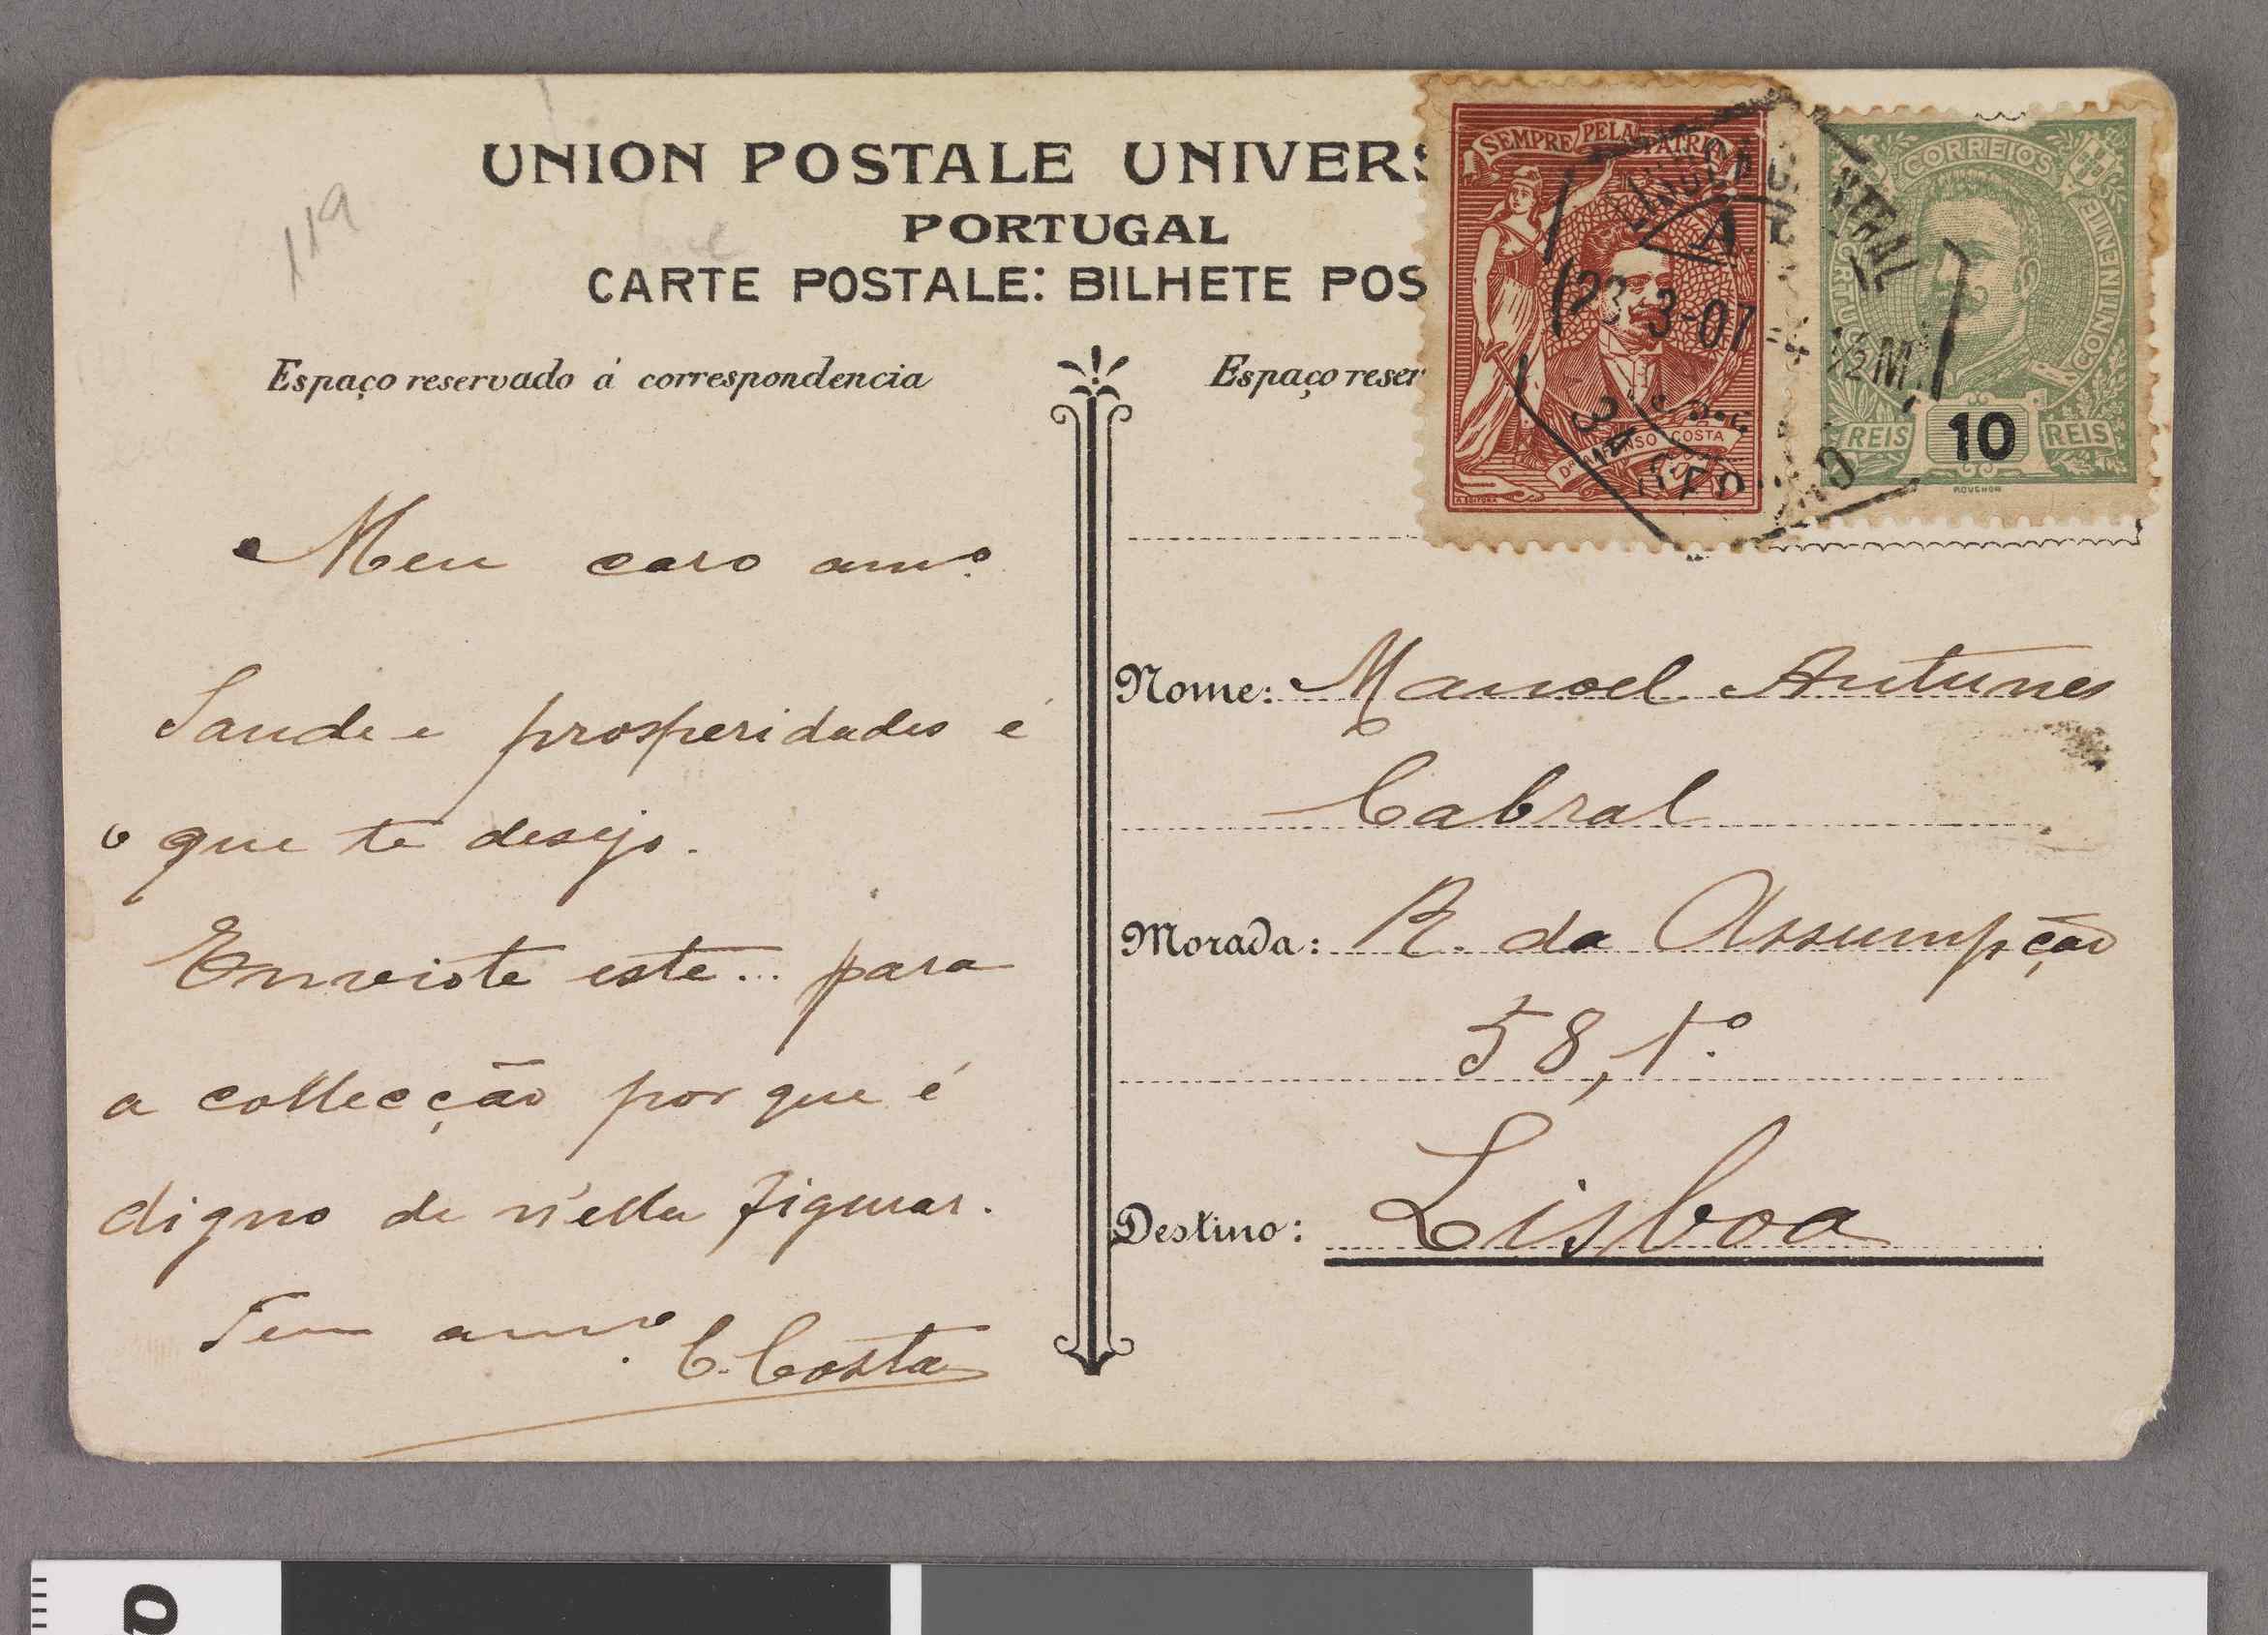 UNION POSTALE UNIVERS
PORTUGAL
CARTE POSTALE: BILHETE POS
119
Espaço reservado á correspondencia
Espaço reser
SEMPRE PELA PATRIA
Dr AFFONSO COSTA
CORREIOS
PORTUGAL
CONTINENTE
REIS 10 REIS
MOUCHON
LISBOA CENTRAL
23-3-07
Meu caro amº.
Saude e prosperidades é
o que te desejo.
Envio-te este... para
a collecção por que é
digno de n'ella figurar.
Teu amº.
C. Costa
Nome: Manoel Antunes
Cabral
Morada: R. da Assumpção
58, 1º.
Destino: Lisboa